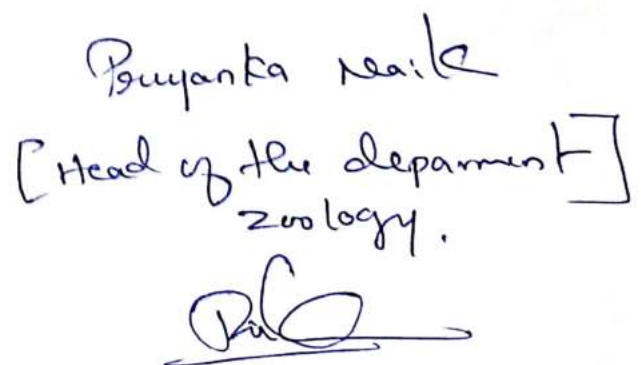 Priyanka Naik
[Head of the deparment]
zoology.